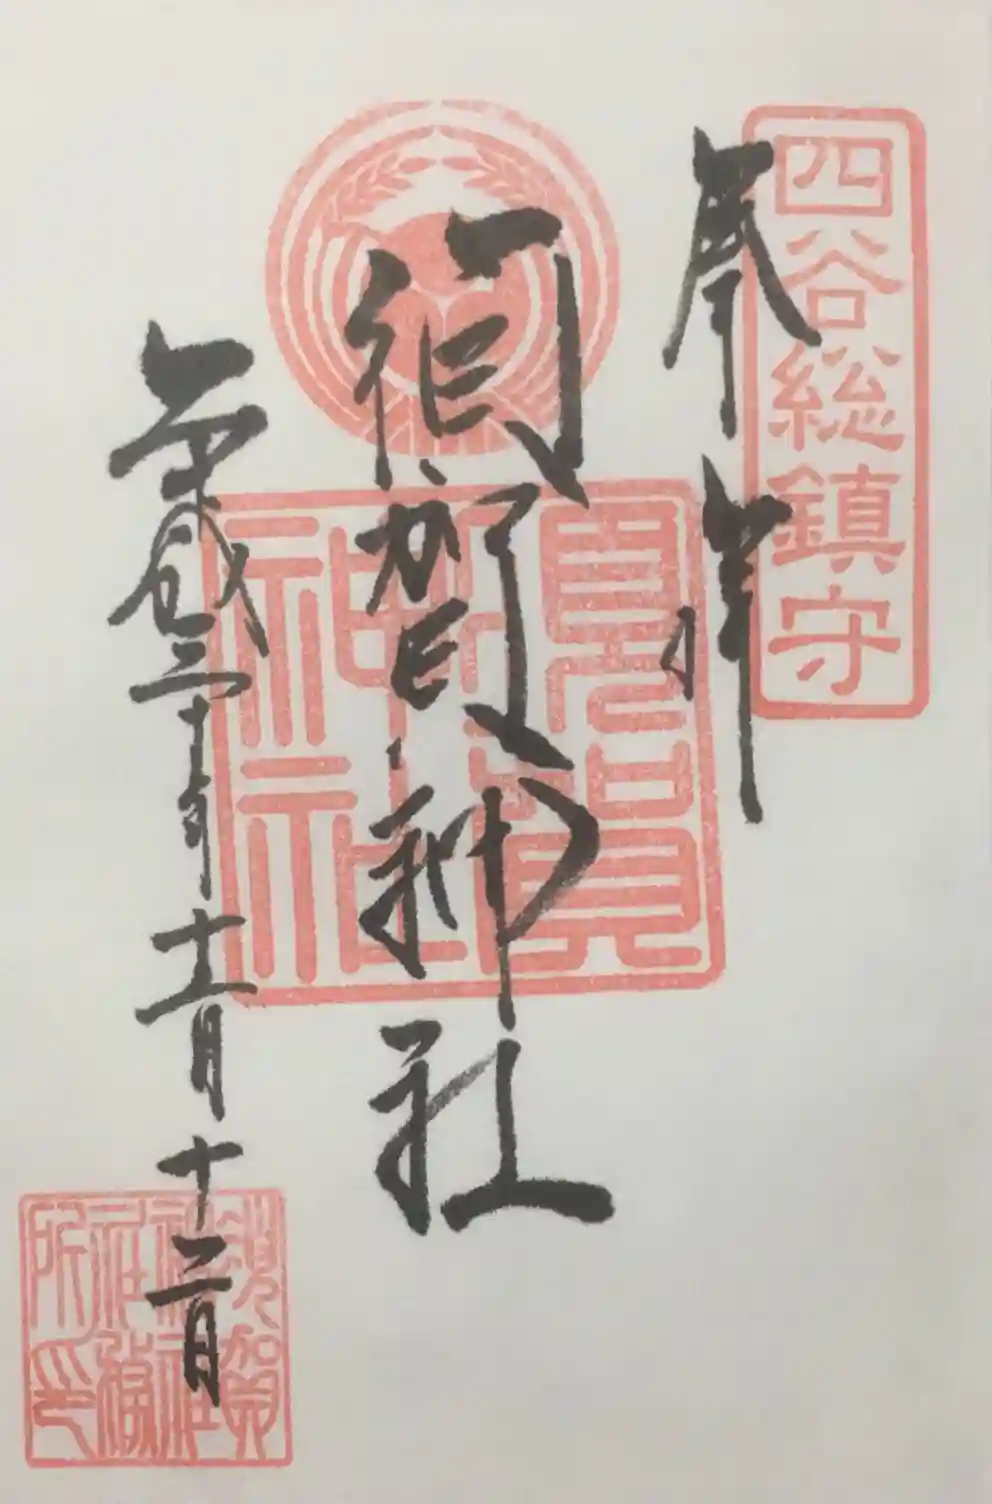 四谷総鎮守
奉拝
須賀神社
須賀神社
平成三十年十二月十二日
須賀
神社
社務
所印